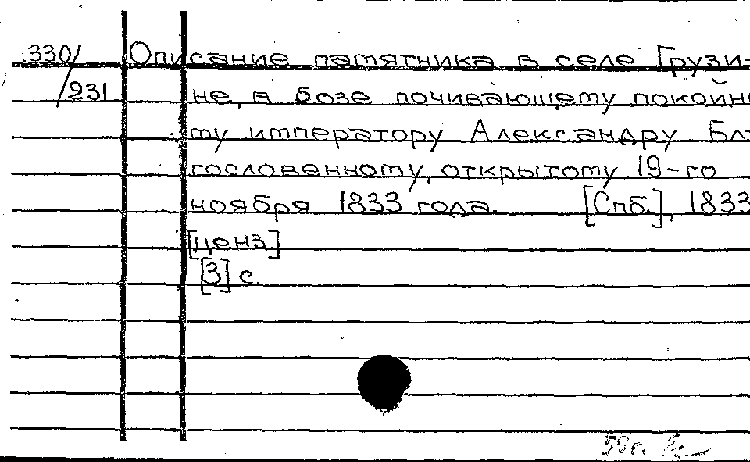 330/ Описание памятника в селе Грузи-
231 не, в бозе почивающему покойно
му императору Александру Бла
гословенному, открытому 19-го
ноября 1833 года. [Спб.], 1833
[ценз]
[3] с.